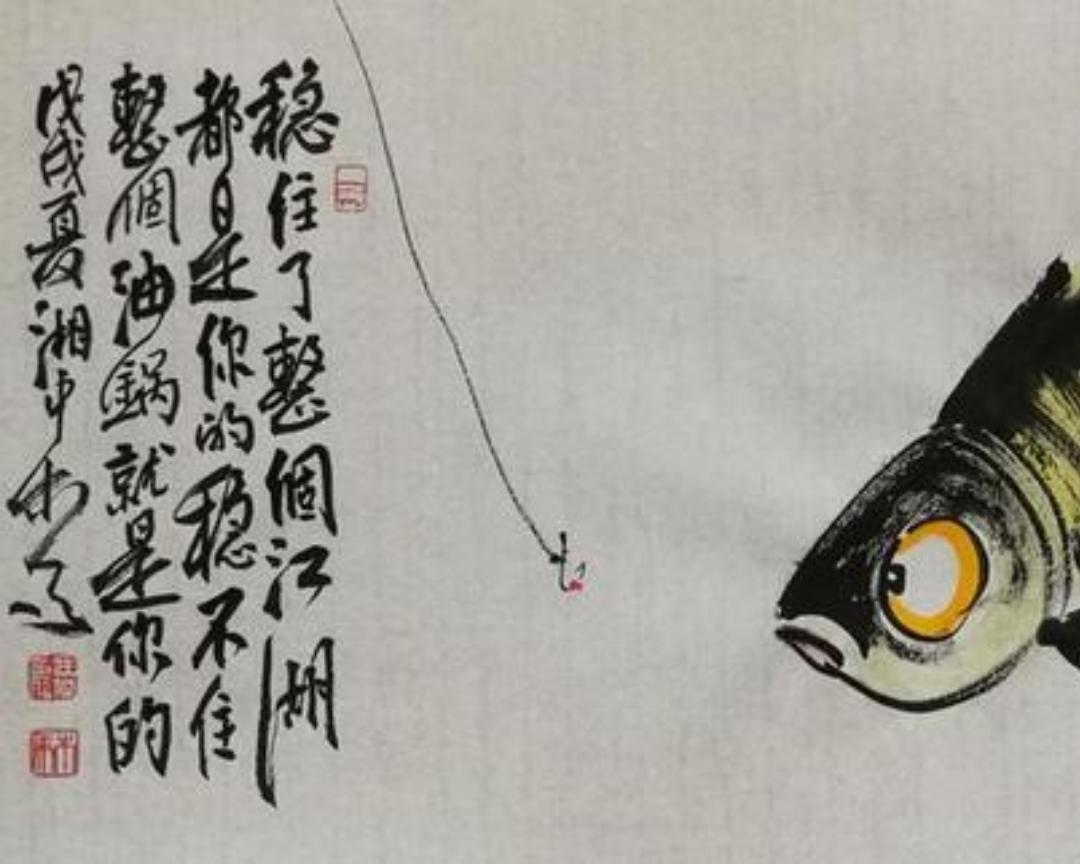 稳住了整個江湖
都是你的稳不住
整個油鍋就是你的
戊戌夏湘中